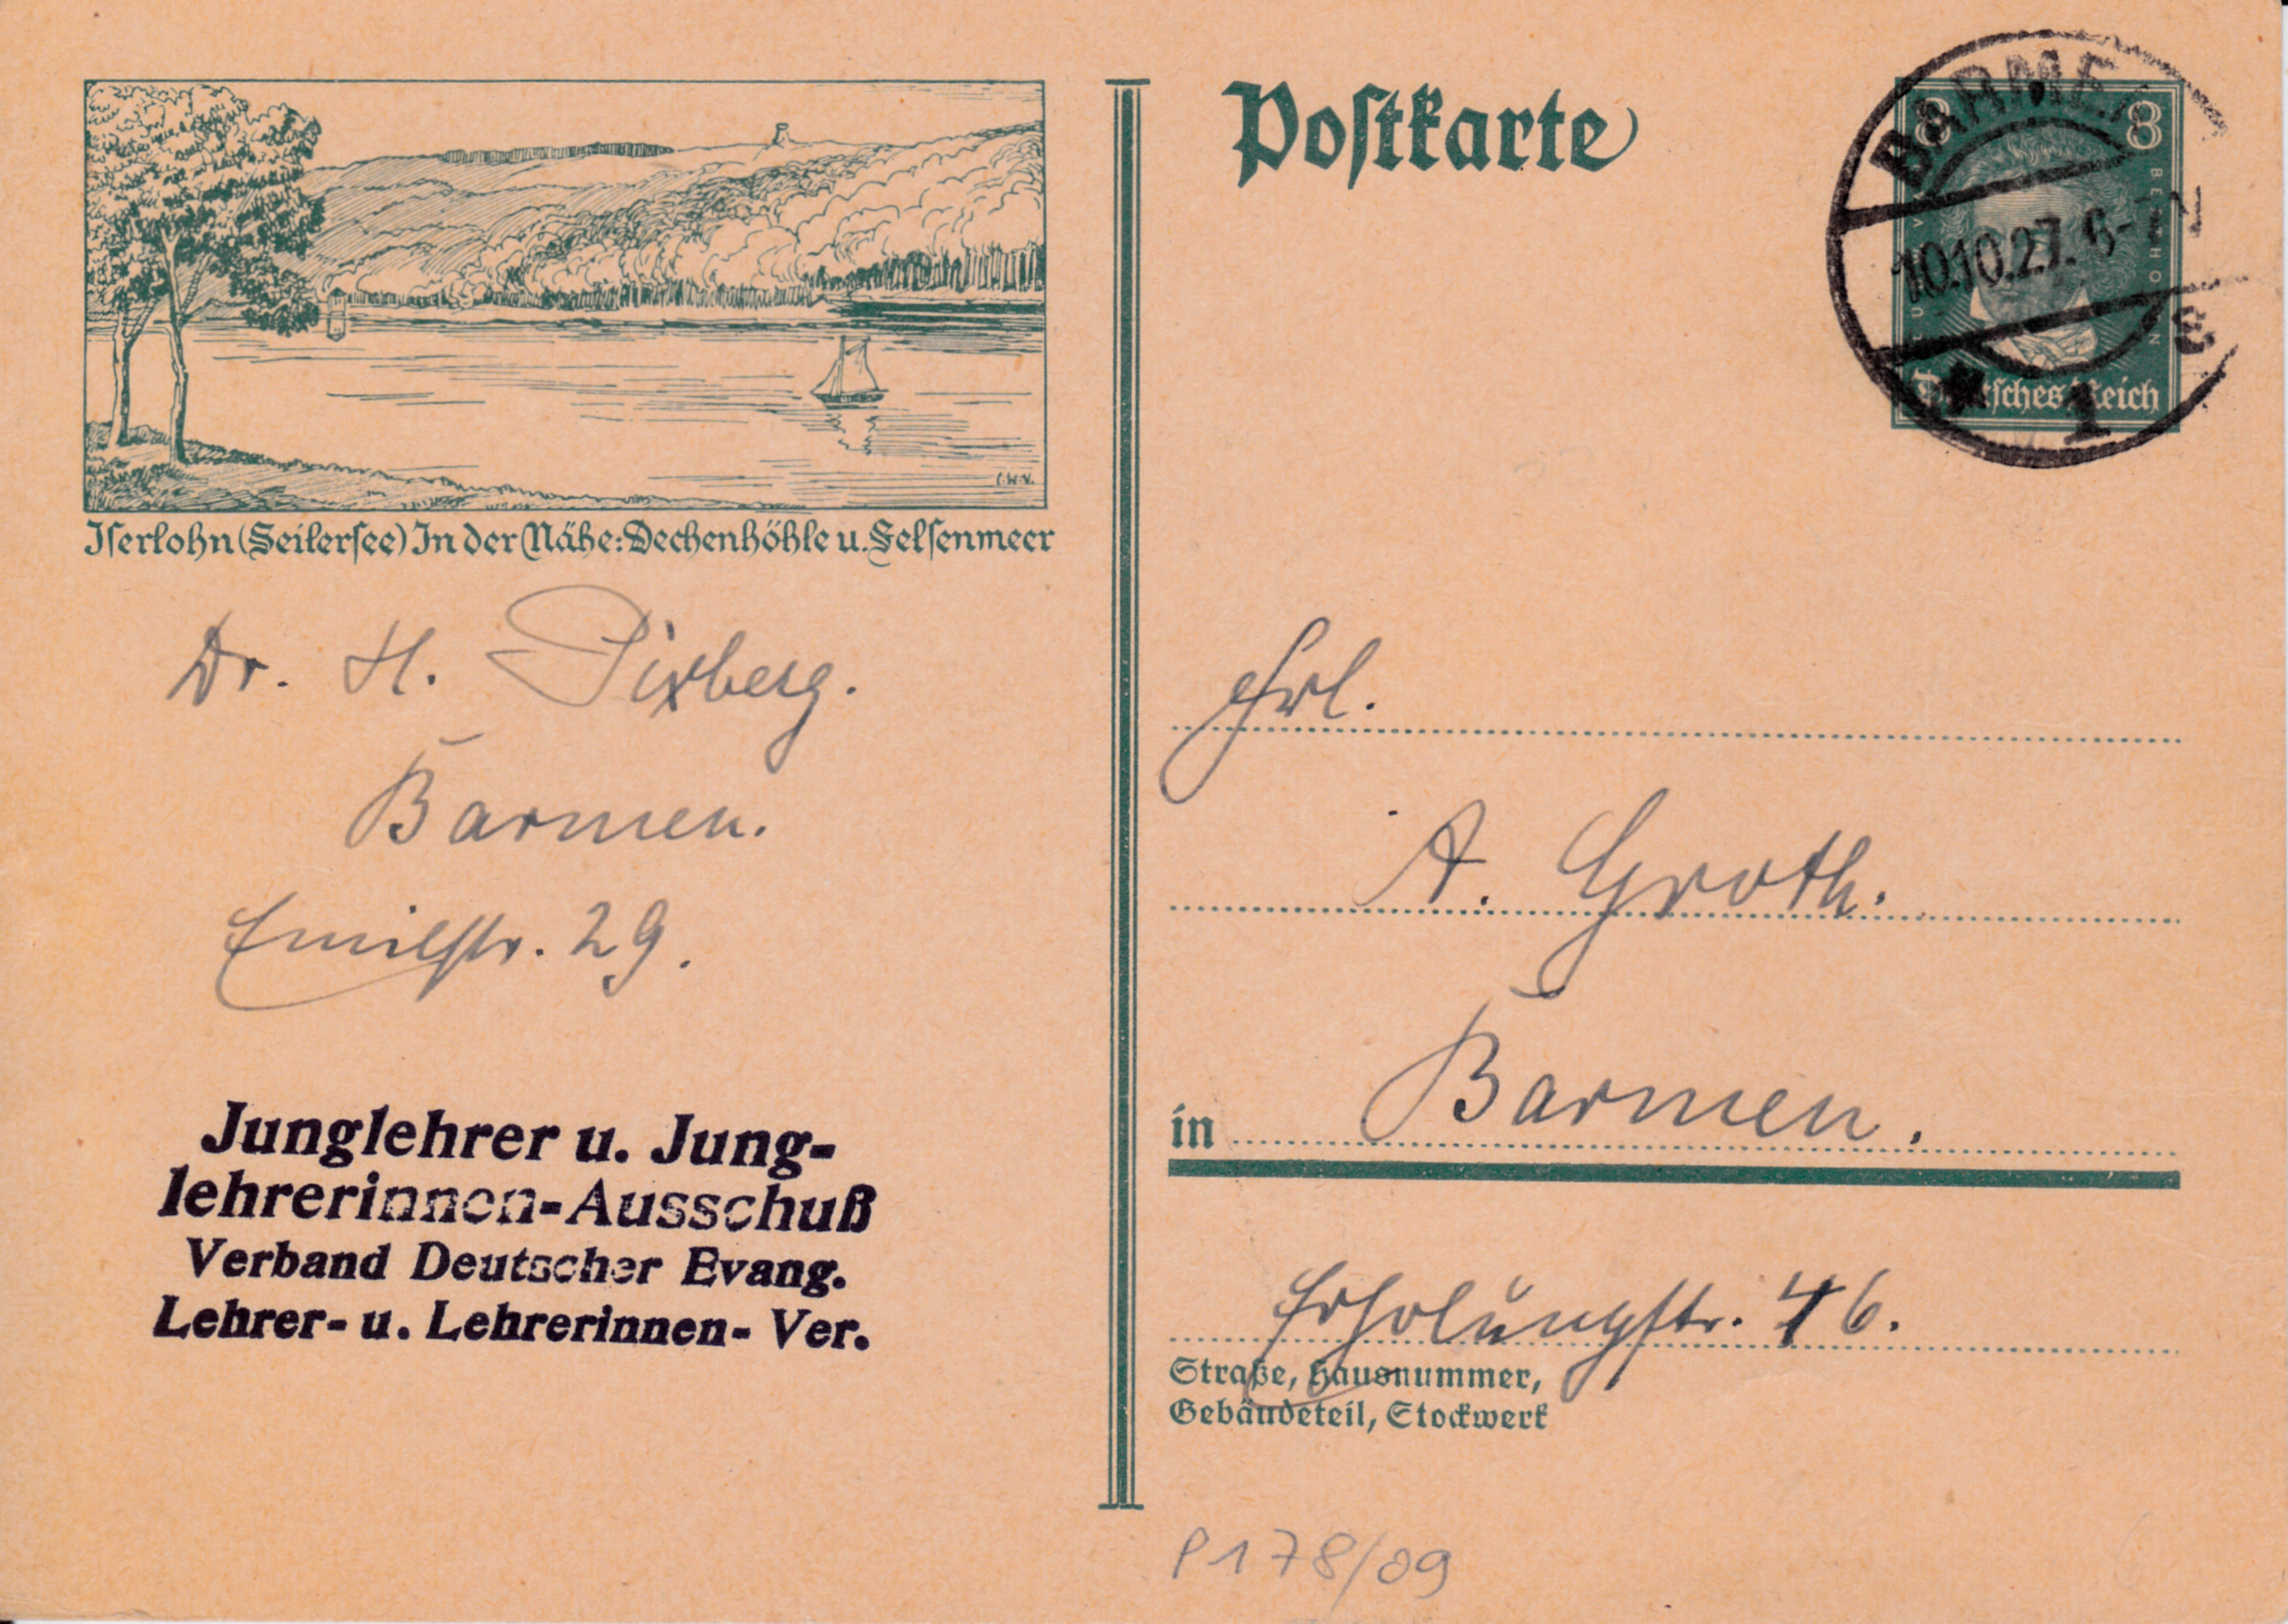 Postkarte
BARMEN
10.10.27. 6-7 N
* 1 s
8 8
BEETHOVEN
Deutsches Reich
C.W.V.
Iserlohn (Seilersee) In der Nähe: Dechenhöhle u. Felsenmeer
Dr. H. Pixberg.
Barmen.
Emilstr. 29.
Junglehrer u. Jung-
lehrerinnen-Ausschuß
Verband Deutscher Evang.
Lehrer- u. Lehrerinnen- Ver.
Frl.
A. Groth.
in Barmen.
Erholungstr. 46.
Straße, Hausnummer,
Gebäudeteil, Stockwerk
P178/09